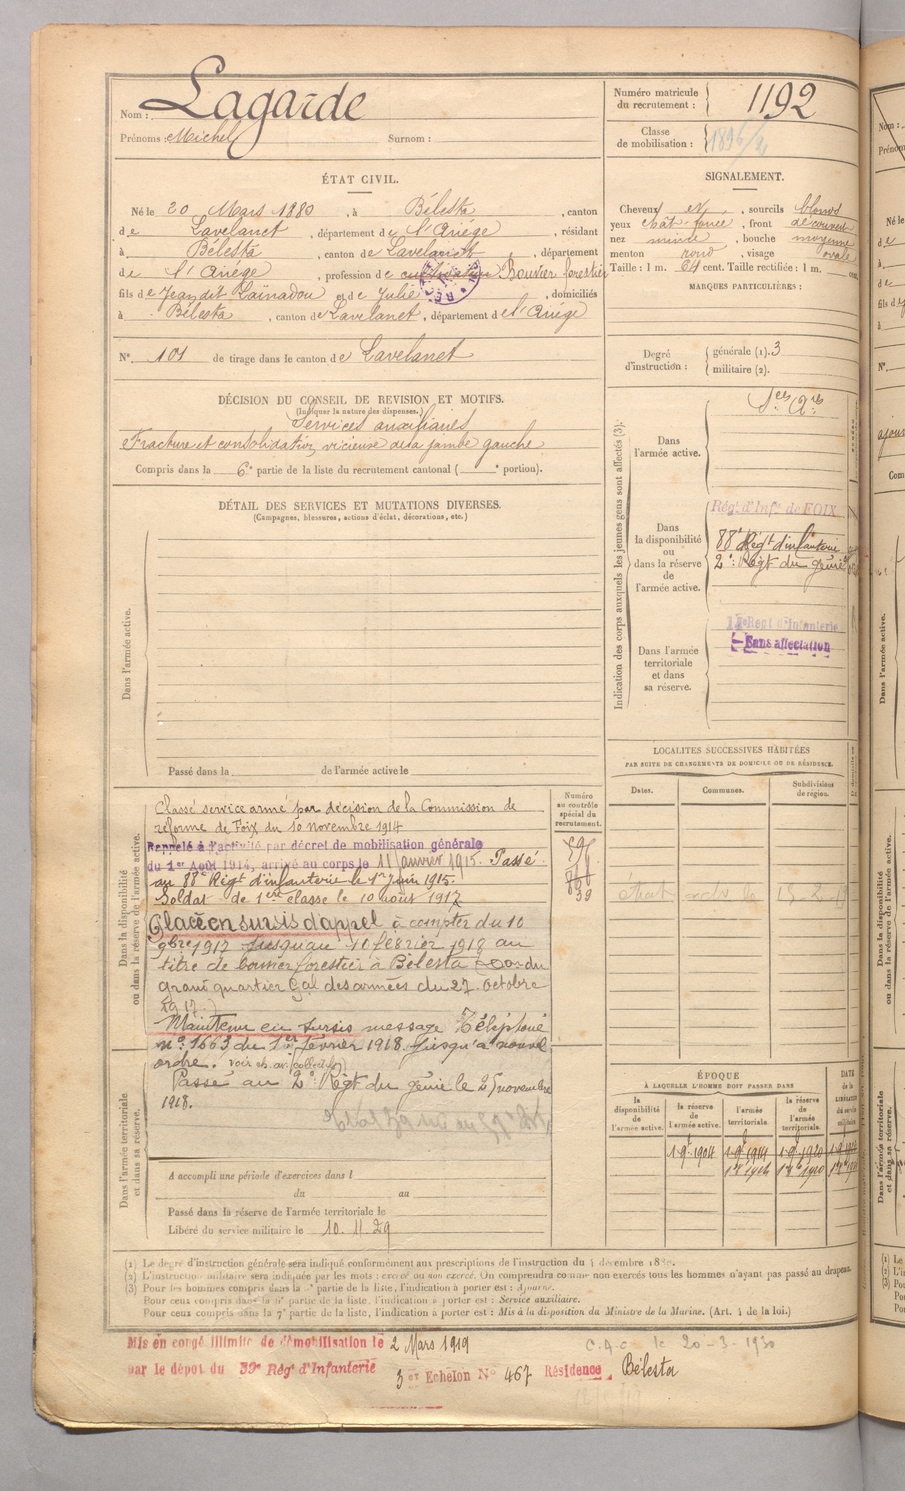 Nom : Lagarde
Prénoms : Michel Surnom :
Numéro matricule du recrutement : 1192
Classe de mobilisation :
ÉTAT CIVIL.
Né le 20 Mars 1880, à Bélesta, canton
de Lavelanet, département de l'Ariège, résidant
à Bélesta, canton de Lavelanet, département
de l'Ariège, profession de Bouvier forestier
fils de Jean dit Laïnadou et de Julie, domiciliés
à Bélesta, canton de Lavelanet, département de l'Ariège
N° 101 de tirage dans le canton de Lavelanet
DÉCISION DU CONSEIL DE REVISION ET MOTIFS.
(Indiquer la nature des dispenses.)
Services auxiliaires
Fracture et consolidation vicieuse de la jambe gauche
Compris dans la 6e partie de la liste du recrutement cantonal ( e portion).
DÉTAIL DES SERVICES ET MUTATIONS DIVERSES.
(Campagnes, blessures, actions d'éclat, décorations, etc.)
Dans l'armée active.
Passé dans la de l'armée active le
SIGNALEMENT.
Cheveux et sourcils blonds
yeux chât. foncé, front découvert
nez mince, bouche moyenne
menton rond, visage ovale
Taille : 1 m. 64 cent. Taille rectifiée : 1 m. cent.
MARQUES PARTICULIÈRES :
Degré d'instruction : générale (1). 3
militaire (2).
Indication des corps auxquels les jeunes gens sont affectés (3).
Dans l'armée active.
Dans la disponibilité ou dans la réserve de l'armée active.
Rég. d'Inf. de FOIX
88e Régt d'infanterie
2e Régt du génie
Dans l'armée territoriale et dans sa réserve.
Régt d'Infanterie
Sans affectation
LOCALITÉS SUCCESSIVES HABITÉES
PAR SUITE DE CHANGEMENTS DE DOMICILE OU DE RÉSIDENCE.
Dates. Communes. Subdivisions de région.
Dans la disponibilité ou dans la réserve de l'armée active.
Numéro au contrôle spécial du recrutement.
39
Classé service armé par décision de la Commission de
réforme de Foix du 10 novembre 1914
Rappelé à l'activité par décret de mobilisation générale
du 1er Août 1914, arrivé au corps le 11 janvier 1915. Passé
au 88e Régt d'infanterie le 1er juin 1915.
Soldat de 1ère classe le 10 août 1917
Placé en sursis d'appel à compter du 10
9bre 1917 jusqu'au 10 février 1918 au
titre de bouvier forestier à Bélesta du
grand quartier Gal des armées du 27 Octobre
1917.
Maintenu en sursis message Téléphoné
n° 1663 du 1er février 1918 jusqu'à nouvel
ordre.
Passé au 2e Régt du génie le 25 novembre
1918.
Dans l'armée territoriale et dans sa réserve.
A accompli une période d'exercices dans l
du au
Passé dans la réserve de l'armée territoriale le
Libéré du service militaire le 10.11.29
ÉPOQUE
À LAQUELLE L'HOMME DOIT PASSER DANS
la disponibilité de l'armée active. la réserve de l'armée active. l'armée territoriale. la réserve de l'armée territoriale. DATE de la LIBÉRATION du service militaire.
(1) Le degré d'instruction générale sera indiqué conformément aux prescriptions de l'instruction du 4 décembre 1889.
(2) L'instruction militaire sera indiquée par les mots : exercé ou non exercé. On comprendra comme non exercés tous les hommes n'ayant pas passé au drapeau.
(3) Pour les hommes compris dans la 5e partie de la liste, l'indication à porter est : Ajourné.
Pour ceux compris dans la 6e partie de la liste, l'indication à porter est : Service auxiliaire.
Pour ceux compris dans la 7e partie de la liste, l'indication à porter est : Mis à la disposition du Ministre de la Marine. (Art. 4 de la loi.)
Mis en congé illimité de démobilisation le 2 Mars 1919
par le dépôt du 59e Rég. d'Infanterie 3e Echelon N° 467 Résidence Bélesta